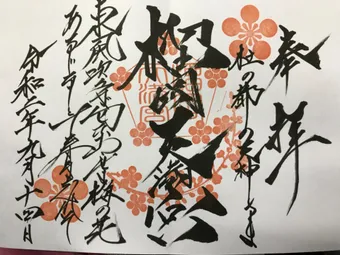 奉拝
杜の都の天神さま
榴岡天満宮
東風吹かば匂ひおこせよ梅の花
あるじなしとて春を忘るな
令和二年九月十四日